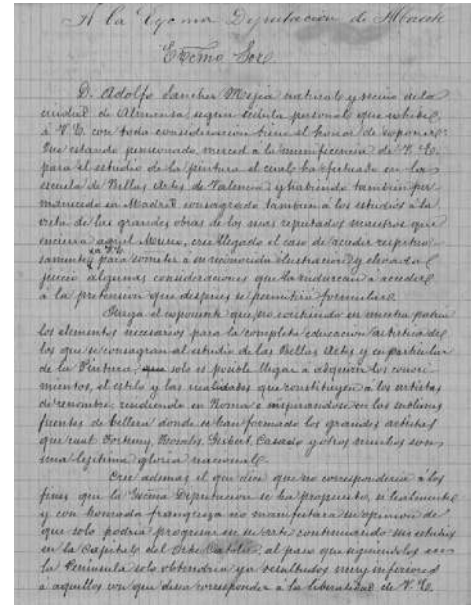 A la Excma Diputacion de Albacete
Excmo Sor
D. Adolfo Sanchez Mejia natural y vecino de la
ciudad de Almansa segun cédula personal que exhibe,
á V. E. con toda consideracion tiene el honor de exponer:
Que estando pensionado, merced á la munificencia de V. E.
para el estudio de la pintura el cual ha efectuado en la
escuela de Bellas Artes de Valencia y habiendo tambien per
manecido en Madrid consagrado tambien á los estudios á la
vista de las grandes obras de los mas reputados maestros que
encierra aquel Museo, cree llegado el caso de acudir respetuo
samente á V. E. para someter á su reconocida ilustracion y elevado
juicio algunas consideraciones que la induzcan á acceder
á la pretension que despues se permitirá formular.
Juzga el exponente que no existiendo en nuestra patria
los elementos necesarios para la completa educacion artistica de
los que se consagran al estudio de las Bellas Artes y en particular
de la Pintura, solo es posible llegar á adquirir los conoci
mientos, el estilo y las cualidades que constituyen á los artistas
de renombre, residiendo en Roma é inspirandose en las
fuentes de belleza donde se han formado los grandes artistas
que cual Fortuny, Rosales, Gisbert, Casado y otros muchos son
una legitima gloria nacional.
Cree ademas el que dice que no corresponderia á los
fines que la Excma Diputacion se ha propuesto, si lealmente
y con honrada franqueza no manifestara su opinion de
que solo podria progresar en su arte continuando sus estudios
en la Capital del Orbe Catolico, al paso que siguiendolos en
la Peninsula solo obtendria ya resultados muy inferiores
á aquellos con que desea corresponder á la liberalidad de V. E.